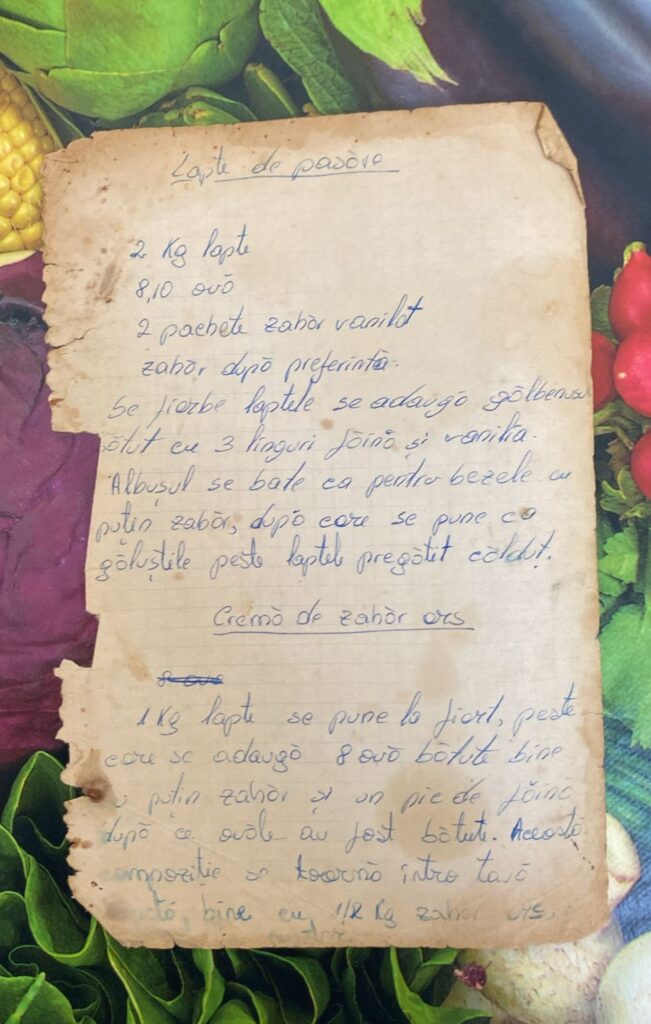 Lapte de pasăre
2 Kg lapte
8,10 ouă
2 pachete zahăr vanilat
zahăr după preferință.
Se fierbe laptele se adaugă gălbenusu
bătut cu 3 linguri făină și vanilia.
Albușul se bate ca pentru bezele cu
puțin zahăr, după care se pune ca
găluștile peste laptele pregătit călduț.
Cremă de zahăr ars
8 ouă
1 Kg lapte se pune la fiert, peste
care se adaugă 8 ouă bătute bine
u puțin zahăr și un pic de făină
după ce ouăle au fost bătute. Această
ompoziție se toarnă într-o tavă
bine cu 1/2 Kg zahăr ars